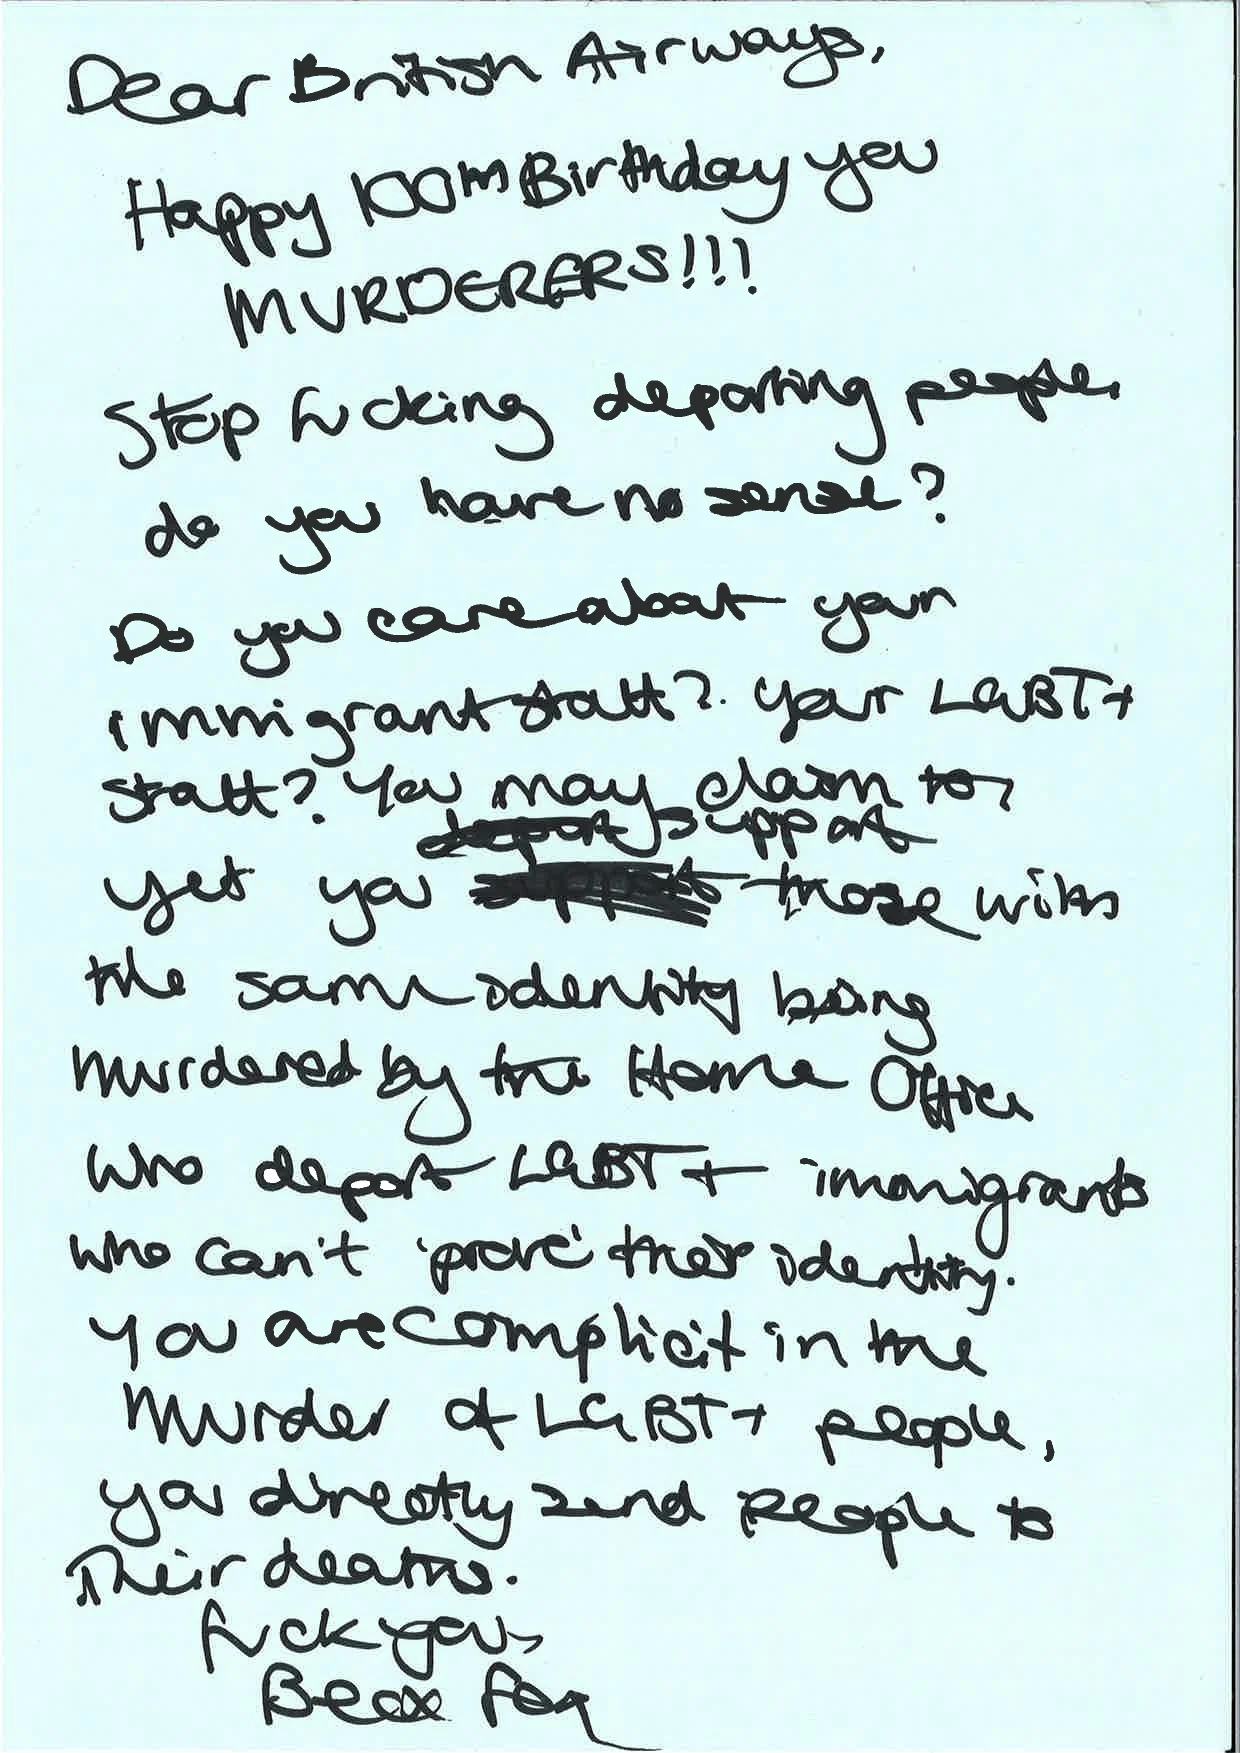 Dear British Airways,
Happy 100th Birthday you
MURDERERS!!!
Stop fucking deporting people,
do you have no sense?
Do you care about your
immigrant staff? Your LGBT+
staff? You may claim to,
support
yet you those with
the same identity being
murdered by the Home Office
who deport LGBT+ immigrants
who can't 'prove' their identity.
You are complicit in the
murder of LGBT+ people,
you directly send people to
their deaths.
Fuck you,
Beax Fox